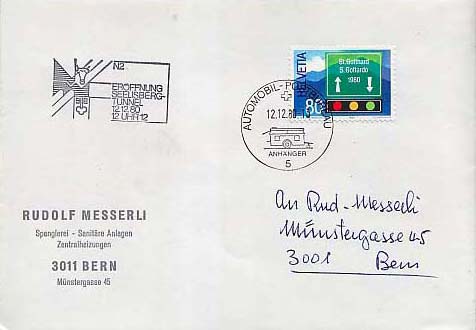 N2
ERÖFFNUNG
SEELISBERG-
TUNNEL
12.12.80
12 UHR 12
HELVETIA
St. Gotthard
S. Gottardo
1980
80
AUTOMOBIL-POSTBUREAU
12.12.80
ANHÄNGER
5
RUDOLF MESSERLI
Spenglerei - Sanitäre Anlagen
Zentralheizungen
3011 BERN
Münstergasse 45
An Rud. Messerli
Münstergasse 45
3001 Bern